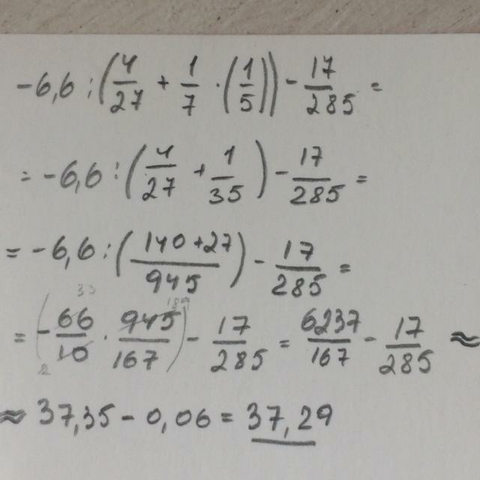 -6,6 : (4/27 + 1/7 · (1/5)) - 17/285 =
= -6,6 : (4/27 + 1/35) - 17/285 =
= -6,6 : (140+27/945) - 17/285 =
= (-66/10 · 945/167) - 17/285 = 6237/167 - 17/285 ≈
≈ 37,35 - 0,06 = 37,29